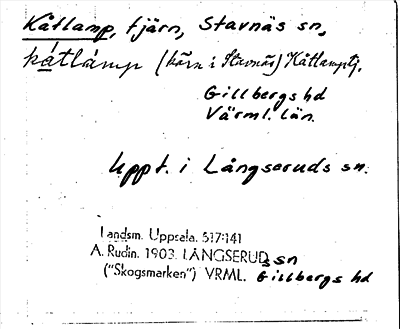 Kåtlamp, tjärn, Stavnäs sn,
kåtlàmp (kärn i Stavnäs) Kåtlampstj.
Gillbergs hd
Värml. län.
Uppt. i Långseruds sn.
Landsm. Uppsala. 517:141
A. Rudin. 1903. LÅNGSERUD sn
("Skogsmarken") VRML. Gillbergs hd